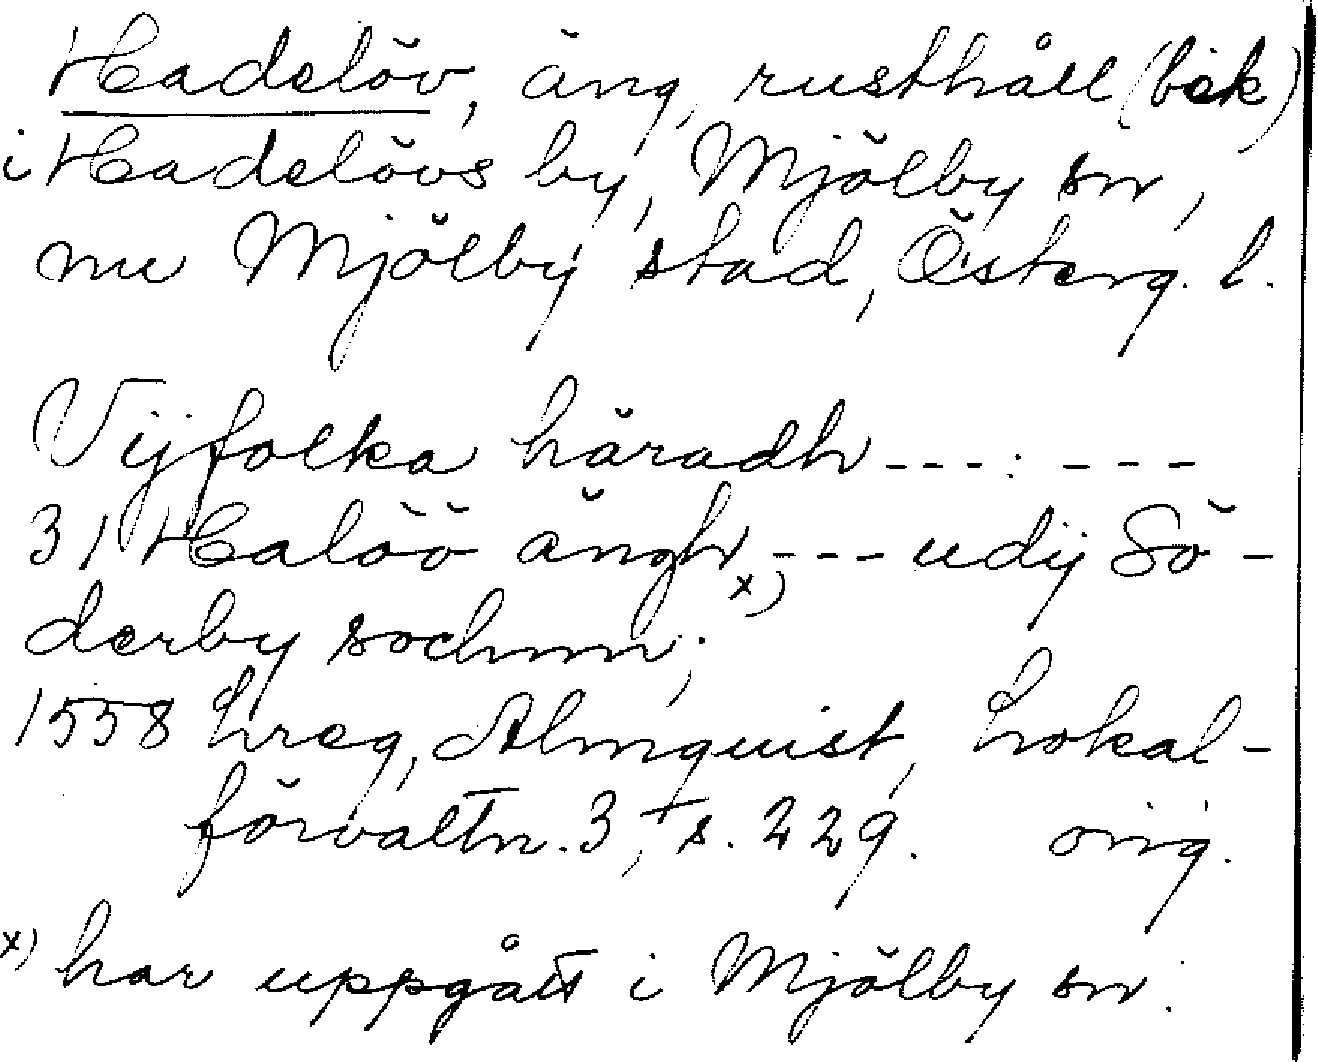 Hadelöv, äng, rusthåll (bek)
i Hadelövs by, Mjölby sn,
nu Mjölby stad, Österg. l.
Vijfolka häradh ---:---
31 Halöö ängh x) --- udij Sö-
derby sochnn;
1558 hreg, Almquist, Lokal-
förvaltn. 3, s. 229. orig.
x) har uppgått i Mjölby sn.